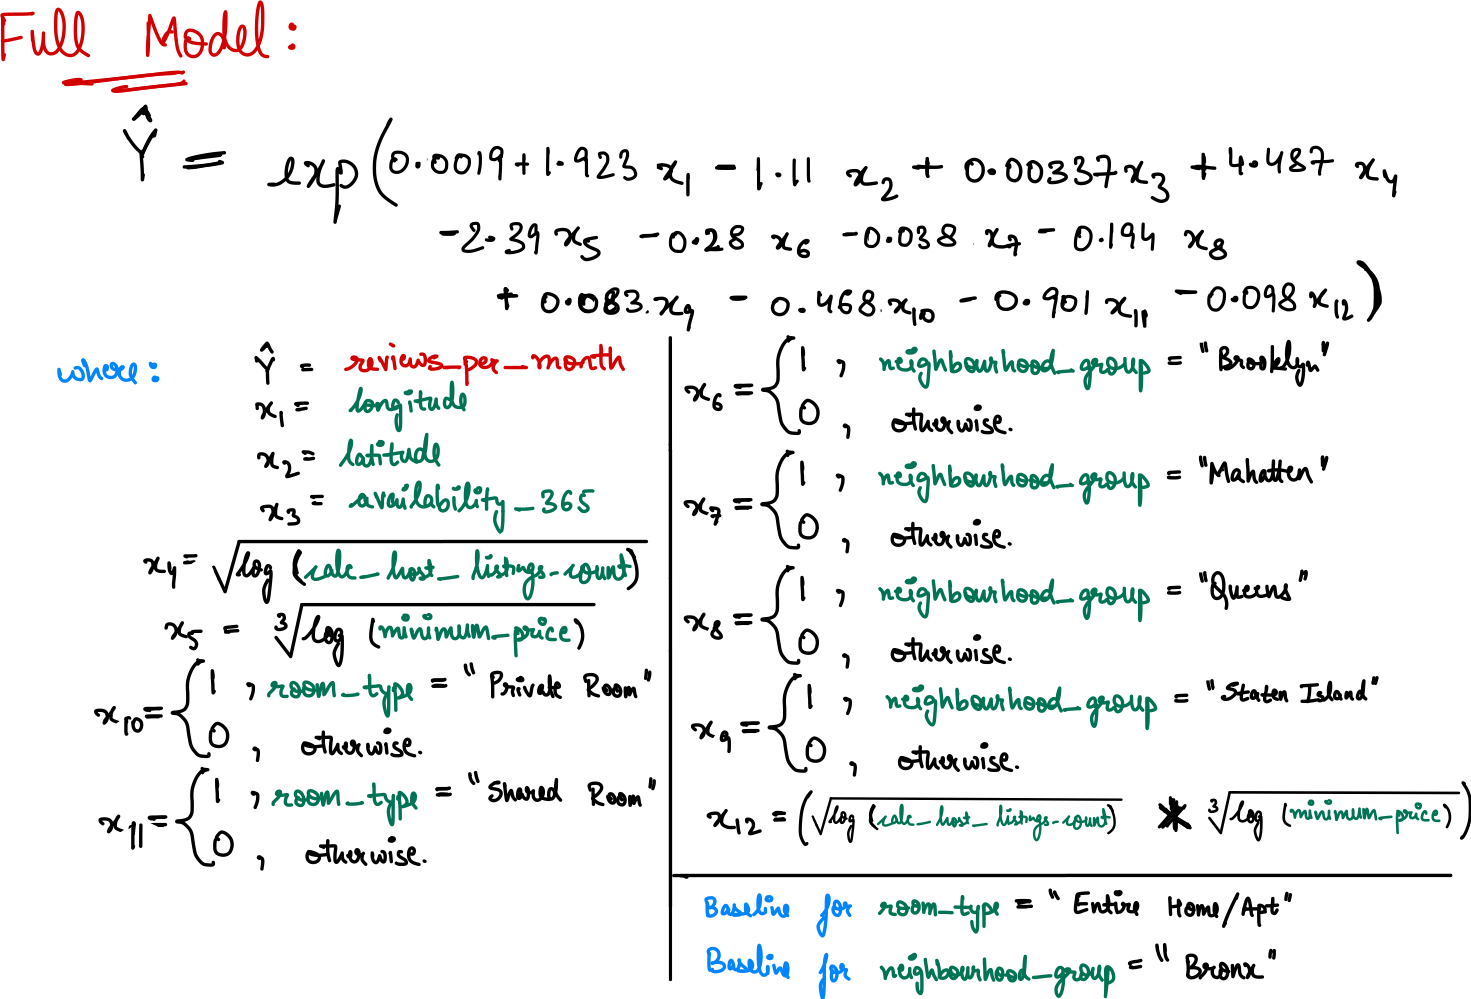 Full Model:
Ŷ = exp(0.0019 + 1.923 x₁ - 1.11 x₂ + 0.00337 x₃ + 4.487 x₄
-2.39 x₅ -0.28 x₆ -0.038 x₇ - 0.194 x₈
+ 0.083.x₉ - 0.468.x₁₀ - 0.901 x₁₁ - 0.098 x₁₂)
where:
Ŷ = reviews_per_month
x₁ = longitude
x₂ = latitude
x₃ = availability_365
x₄ = √log (calc_host_listings-count)
x₅ = ∛log (minimum_price)
x₁₀ = { 1 , room_type = "Private Room"
0 , otherwise.
x₁₁ = { 1 , room_type = "Shared Room"
0 , otherwise.
x₆ = { 1 , neighbourhood_group = "Brooklyn"
0 , otherwise.
x₇ = { 1 , neighbourhood_group = "Mahatten"
0 , otherwise.
x₈ = { 1 , neighbourhood_group = "Queens"
0 , otherwise.
x₉ = { 1 , neighbourhood_group = "Staten Island"
0 , otherwise.
x₁₂ = (√log (calc_host_listings-count) * ∛log (minimum_price))
Baseline for room_type = "Entire Home/Apt"
Baseline for neighbourhood_group = "Bronx"